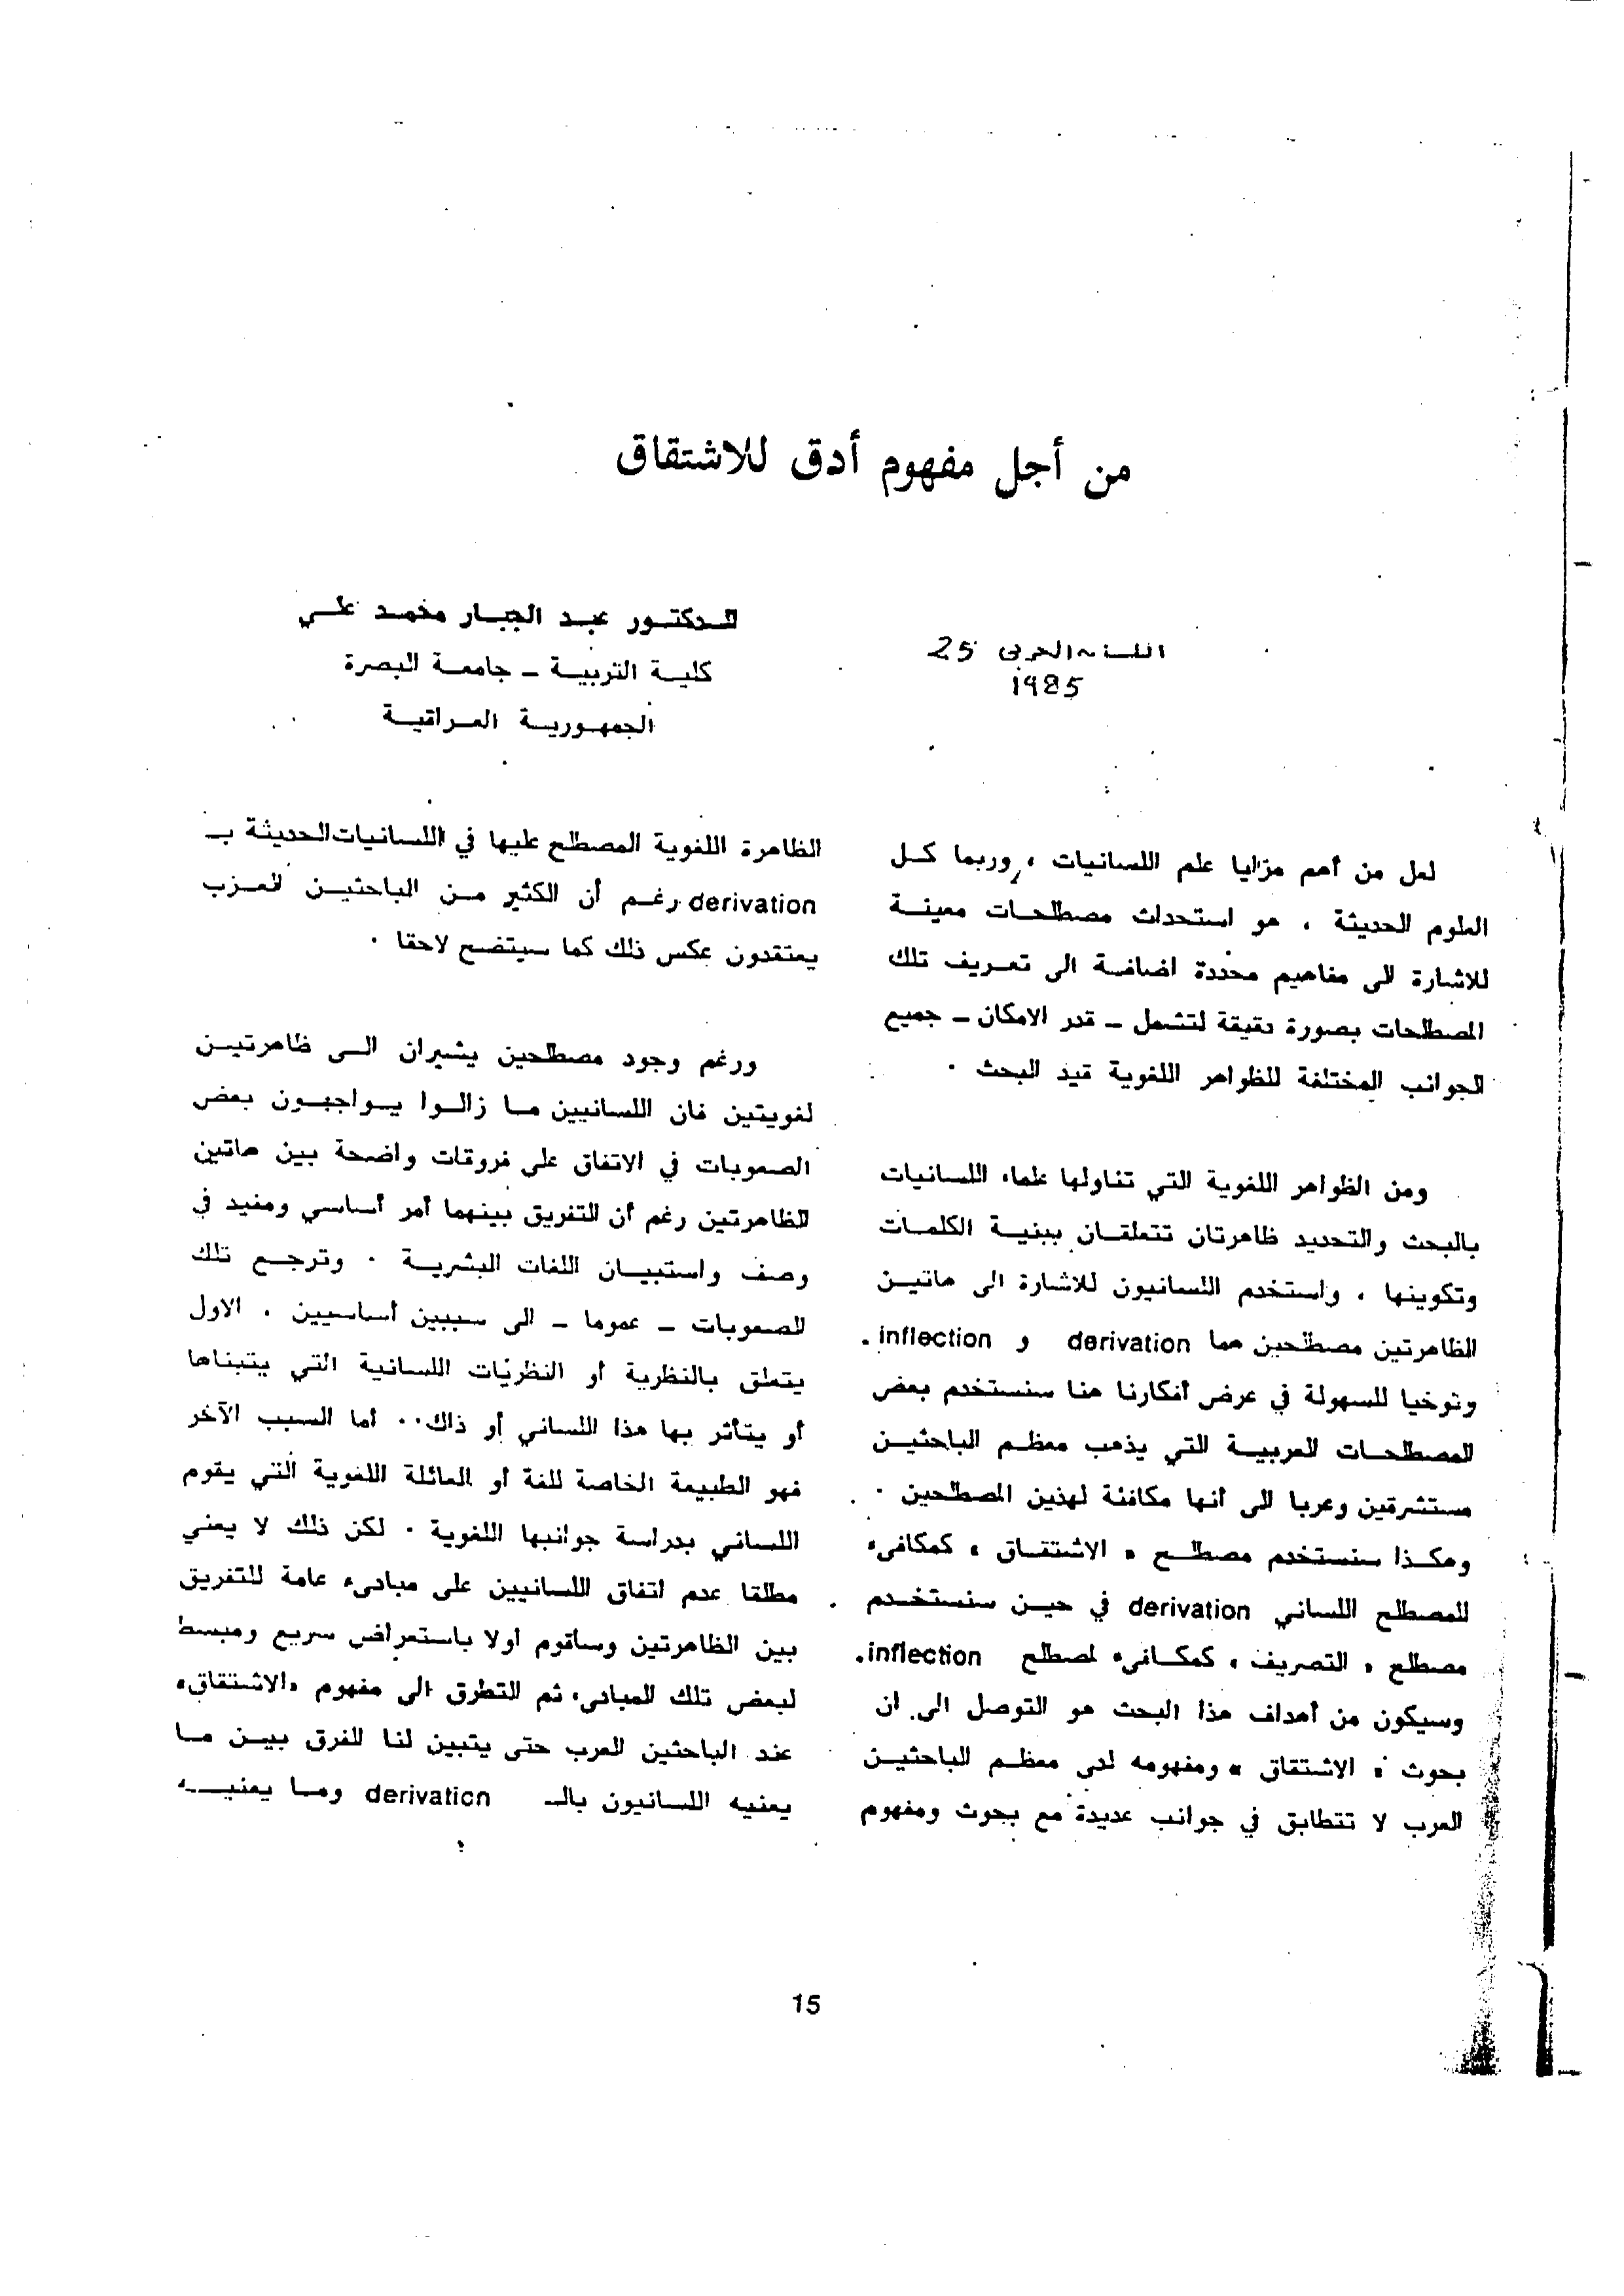 من أجل مفهوم أدق للاشتقاق
للدكتور عبد الجبار محمد علي
كلية التربية ـ جامعة البصرة
الجمهورية العراقية
اللسان العربي 25
1985
لعل من أهم مزايا علم اللسانيات ، وربما كل
العلوم الحديثة ، هو استحداث مصطلحات معينة
للاشارة الى مفاهيم محددة اضافة الى تعريف تلك
المصطلحات بصورة دقيقة لتشمل ـ قدر الامكان ـ جميع
الجوانب المختلفة للظواهر اللغوية قيد البحث .
ومن الظواهر اللغوية التي تناولها علماء اللسانيات
بالبحث والتحديد ظاهرتان تتعلقان ببنية الكلمات
وتكوينها ، واستخدم اللسانيون للاشارة الى هاتين
الظاهرتين مصطلحين هما derivation و inflection.
وتوخيا للسهولة في عرض أفكارنا هنا سنستخدم بعض
المصطلحات العربية التي يذهب معظم الباحثين
مستشرقين وعربا الى أنها مكافئة لهذين المصطلحين .
وهكذا سنستخدم مصطلح « الاشتقاق » كمكافىء
للمصطلح اللساني derivation في حين سنستخدم
مصطلح « التصريف » كمكافىء لمصطلح inflection.
وسيكون من أهداف هذا البحث هو التوصل الى ان
بحوث « الاشتقاق » ومفهومه لدى معظم الباحثين
العرب لا تتطابق في جوانب عديدة مع بحوث ومفهوم
الظاهرة اللغوية المصطلح عليها في اللسانيات الحديثة بـ
derivation رغم أن الكثير من الباحثين العرب
يعتقدون عكس ذلك كما سيتضح لاحقا .
ورغم وجود مصطلحين يشيران الى ظاهرتين
لغويتين فان اللسانيين ما زالوا يواجهون بعض
الصعوبات في الاتفاق على فروقات واضحة بين هاتين
الظاهرتين رغم أن التفريق بينهما أمر أساسي ومفيد في
وصف واستبيان اللغات البشرية . وترجع تلك
الصعوبات ـ عموما ـ الى سببين أساسيين . الاول
يتعلق بالنظرية أو النظريات اللسانية التي يتبناها
أو يتأثر بها هذا اللساني أو ذاك.. أما السبب الآخر
فهو الطبيعة الخاصة للغة أو العائلة اللغوية التي يقوم
اللساني بدراسة جوانبها اللغوية . لكن ذلك لا يعني
مطلقا عدم اتفاق اللسانيين على مبادىء عامة للتفريق
بين الظاهرتين وسأقوم أولا باستعراض سريع ومبسط
لبعض تلك المبادىء ثم التطرق الى مفهوم «الاشتقاق»
عند الباحثين العرب حتى يتبين لنا الفرق بين ما
يعنيه اللسانيون بالـ derivation وما يعنيـه
15